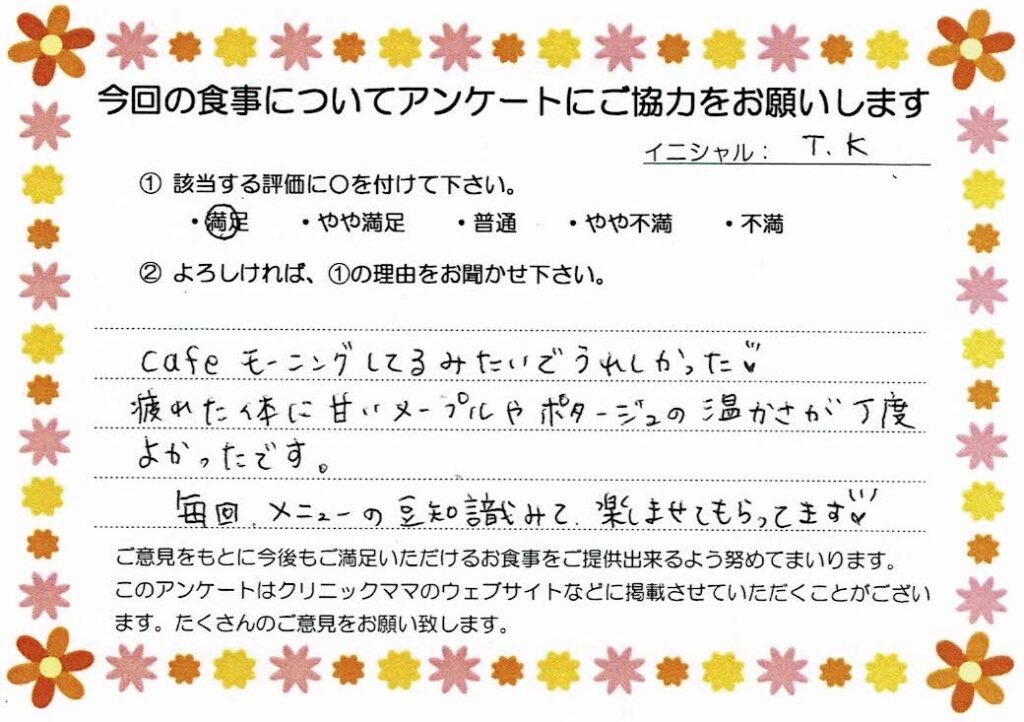 今回の食事についてアンケートにご協力をお願いします
イニシャル： T.K
① 該当する評価に〇を付けて下さい。
・満足 ・やや満足 ・普通 ・やや不満 ・不満
② よろしければ、①の理由をお聞かせ下さい。
cafe モーニングしてるみたいでうれしかった♡
疲れた体に甘いメープルやポタージュの温かさが丁度
よかったです。
毎回、メニューの豆知識みて、楽しませてもらってます♡
ご意見をもとに今後もご満足いただけるお食事をご提供出来るよう努めてまいります。
このアンケートはクリニックママのウェブサイトなどに掲載させていただくことがござい
ます。たくさんのご意見をお願い致します。